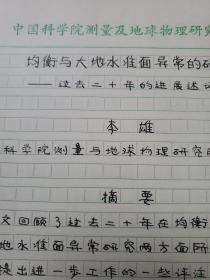 中国科学院测量及地球物理研究
均衡与大地水准面异常的研
——过去二十年的进展述评
李雄
科学院测量与地球物理研究所
摘要
文回顾了过去二十年在均衡
地水准面异常研究两方面所
提出进一步工作的一些评注